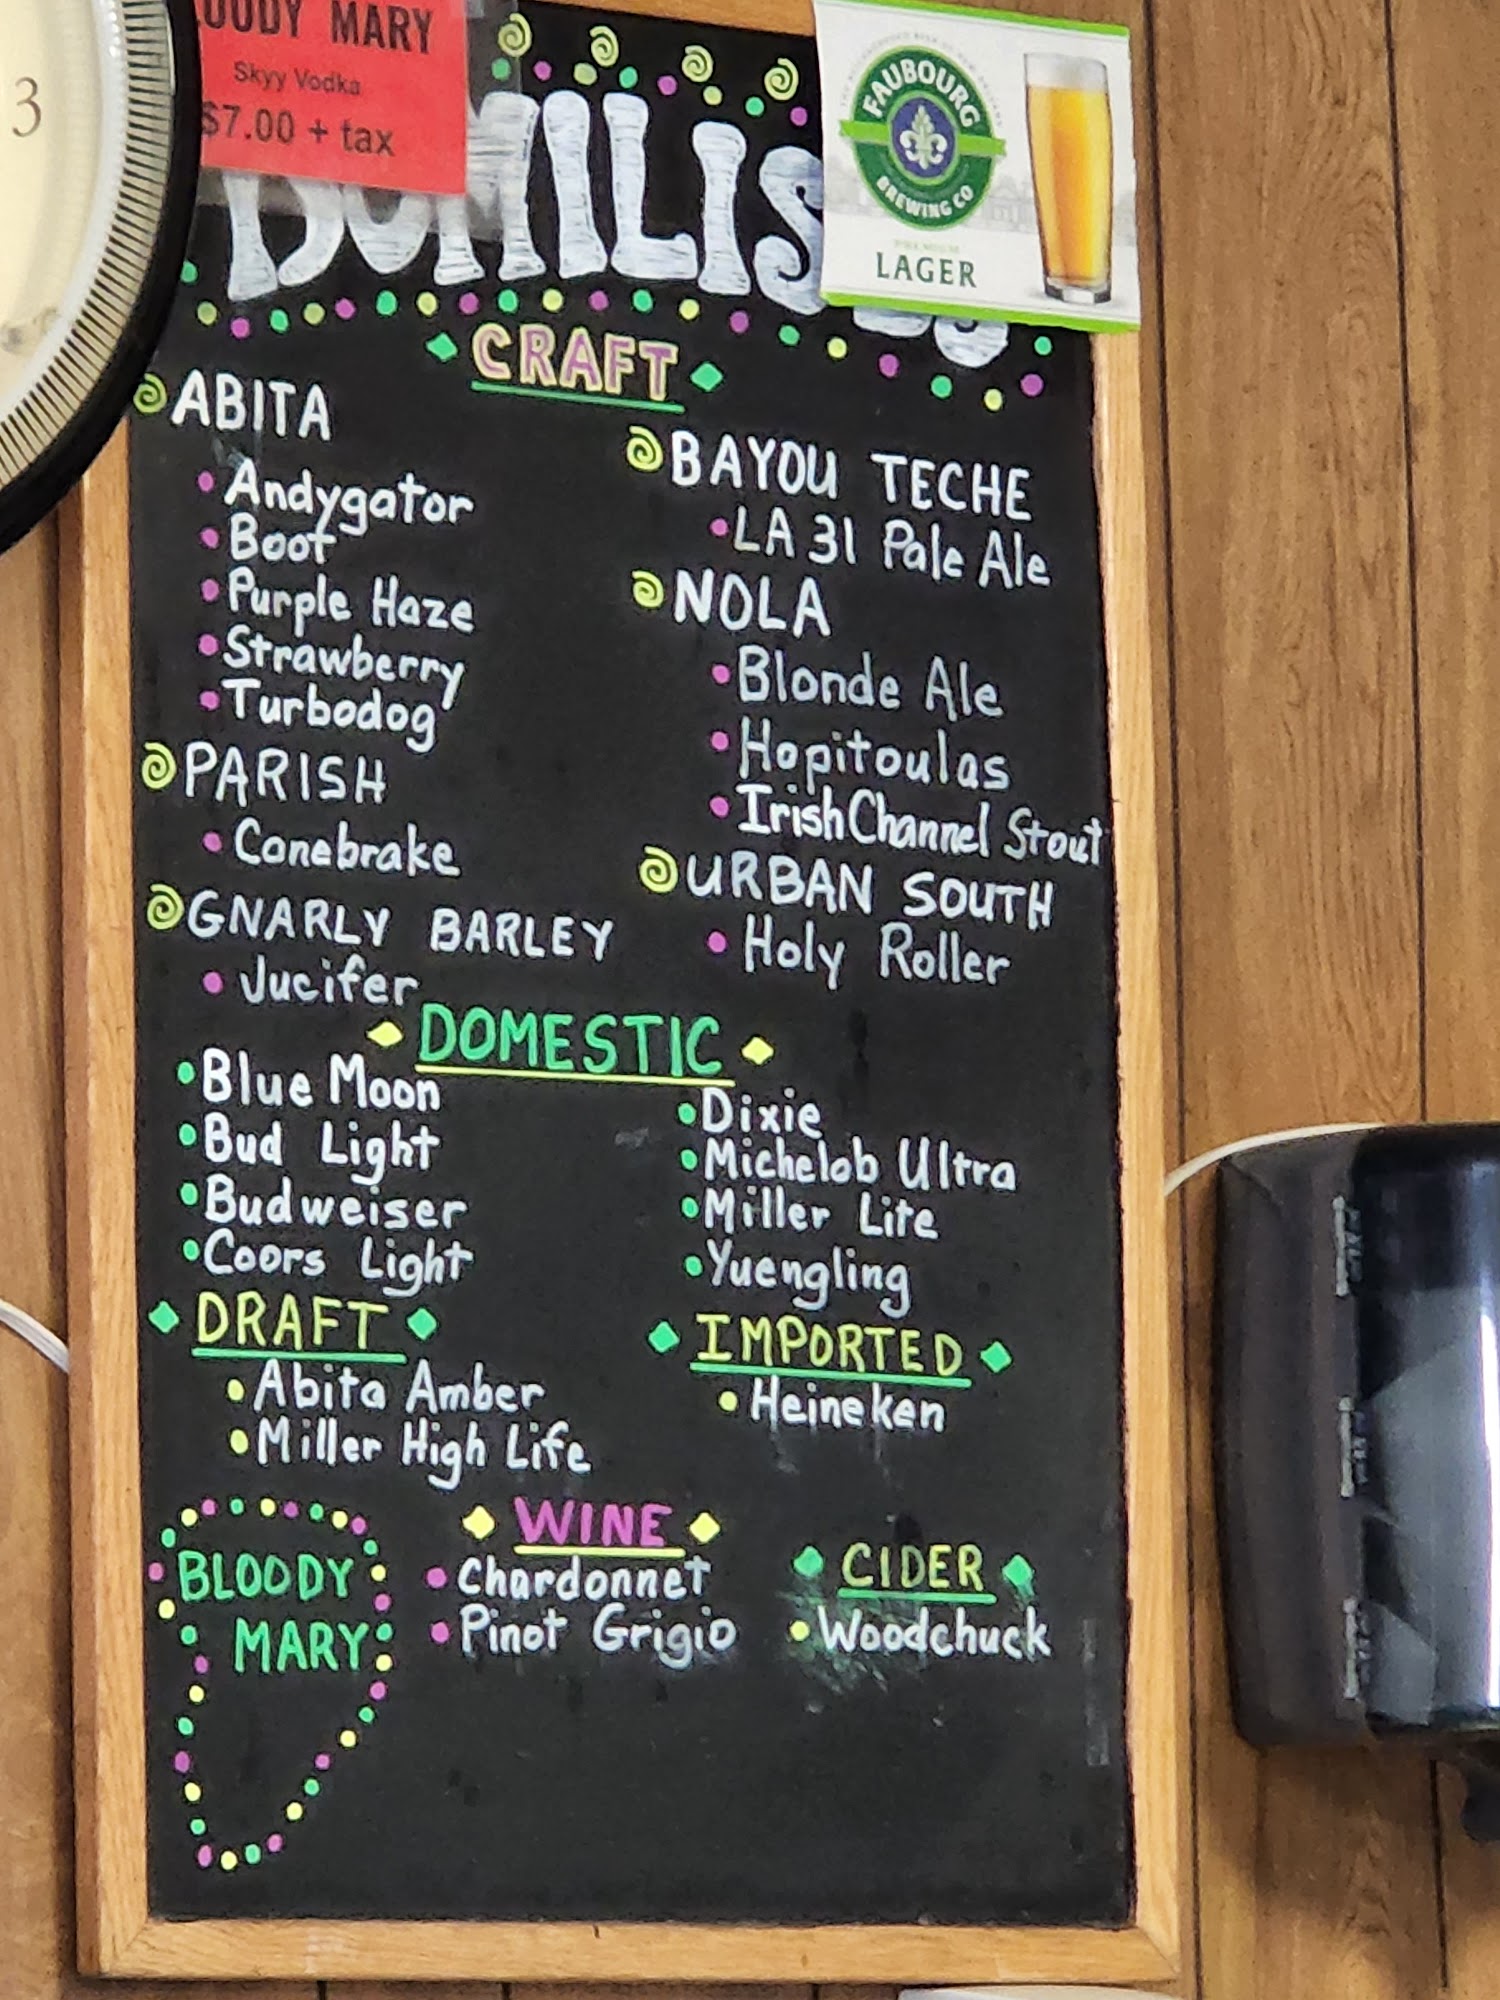 OODY MARY
Skyy Vodka
$7.00 + tax
3
FAUBOURG
BREWING CO
LAGER
CRAFT
ABITA
Andygator
Boot
Purple Haze
Strawberry
Turbodog
PARISH
Canebrake
GNARLY BARLEY
Jucifer
BAYOU TECHE
LA 31 Pale Ale
NOLA
Blonde Ale
Hopitoulas
Irish Channel Stout
URBAN SOUTH
Holy Roller
DOMESTIC
Blue Moon
Bud Light
Budweiser
Coors Light
Dixie
Michelob Ultra
Miller Lite
Yuengling
DRAFT
Abita Amber
Miller High Life
IMPORTED
Heineken
BLOODY
MARY
WINE
Chardonnet
Pinot Grigio
CIDER
Woodchuck